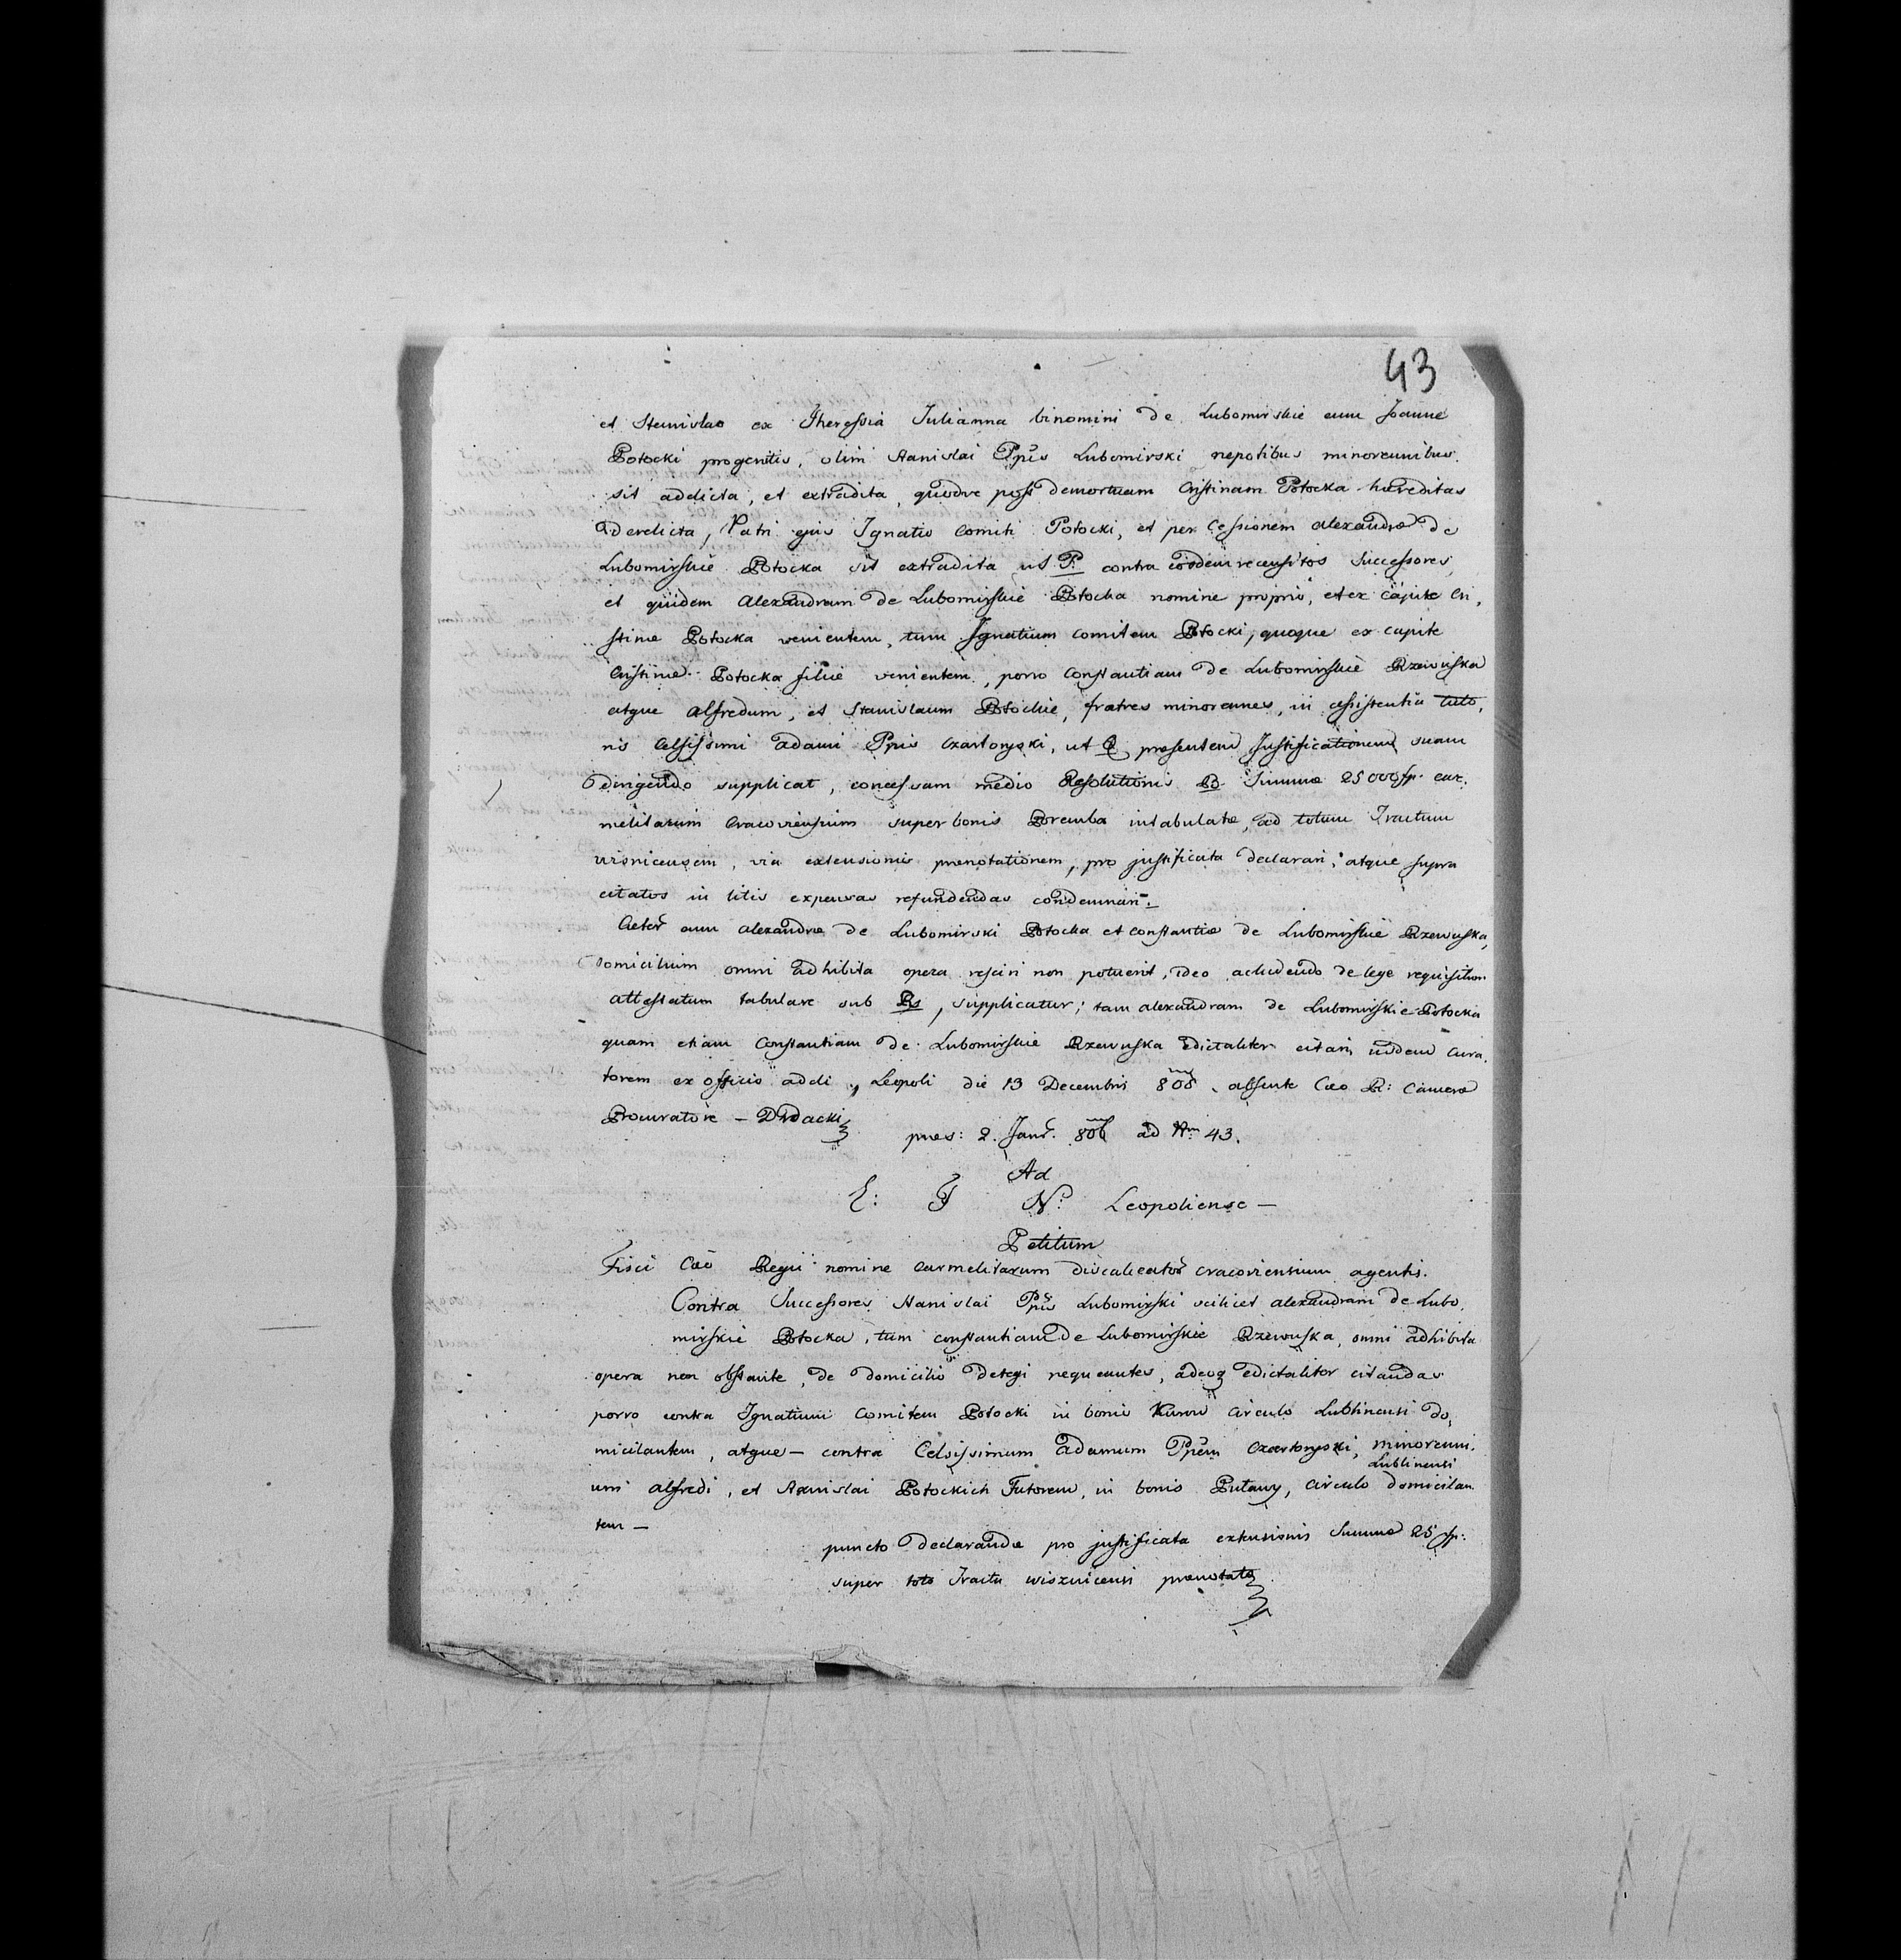 43
et Stanislao ex Theressia Julianna binomini de Lubomirskie cum Joanne
Potocki progenitis, olim Stanislai Ppis Lubomirski nepotibus minorennibus
sit addicta, et extradita, quodve post demortuam Cristinam Potocka hæreditas
derelicta, Patri ejus Ignatio Comiti Potocki, et per Cessionem Alexandræ de
Lubomirskie Potocka sit extradita ut P. contra eosdem recensitos Successores,
et quidem Alexandram de Lubomirskie Potocka nomine proprio, et ex capite Cri,
stinæ Potocka venientem, tum Ignatium Comitem Potocki, quoque ex capite
Cristinæ Potocka filiæ venientem, porro Constantiam de Lubomirskie Rzewuska
atque Alfredum, et Stanislaum Potockie, fratres minorennes, in assistentia tuto,
ris Celsissimi Adami Ppis Czartoryski, ut Q præsentem Justificationem suam
dirigendo supplicat, concessam medio Resolutionis B. Summæ 25000 fp. Car,
melitarum Cracoviensium super bonis Poremba intabulatæ, ad totum Tractum
visnicensem, via extensionis prenotationem, pro justificata declarari, atque supra
citatos in litis expensas refundendas condemnari.
Actor cum Alexandræ de Lubomirski Potocka et Constantiæ de Lubomirskie Rzewuska,
domicilium omni adhibita opera resciri non potuerit, ideo acludendo de lege requisitum
attestatum tabulare sub Rs, supplicatur; tam Alexandram de Lubomirskie Potocka
quam etiam Constantiam de Lubomirskie Rzewuska edictaliter citari, iisdem Cura,
torem ex officio addi, Leopoli die 13 Decembris 805. absente Cæo R: Cameræ
Procuratore – Drdacki
præs: 2. Janr. 806 ad Nm 43.
Ad
E: F N: Leopoliense –
Petitum
Fisci Cæo Regii nomine Carmelitarum discalceator Cracoviensium agentis.
Contra Successores Stanislai Ppis Lubomirski scilicet Alexandram de Lubo,
mirskie Potocka, tum Constantiam de Lubomirskie Rzewuska, omni adhibita
opera non obstante, de domicilio detegi nequeuntes, adeoq edictaliter citandas
porro contra Ignatium Comitem Potocki in bonis Kurow circulo Lublinensi do,
micilantem, atque – contra Celsissimum Adamum Ppem Czartoryski, minorenni,
Lublinensi
um Alfredi, et Stanislai Potockich Tutorem, in bonis Pulawy, circulo domicilan
tem –
puncto declarandæ pro justificata extensionis Summæ 25 fp:
super toto Tractu wisznicensi prænotatæ